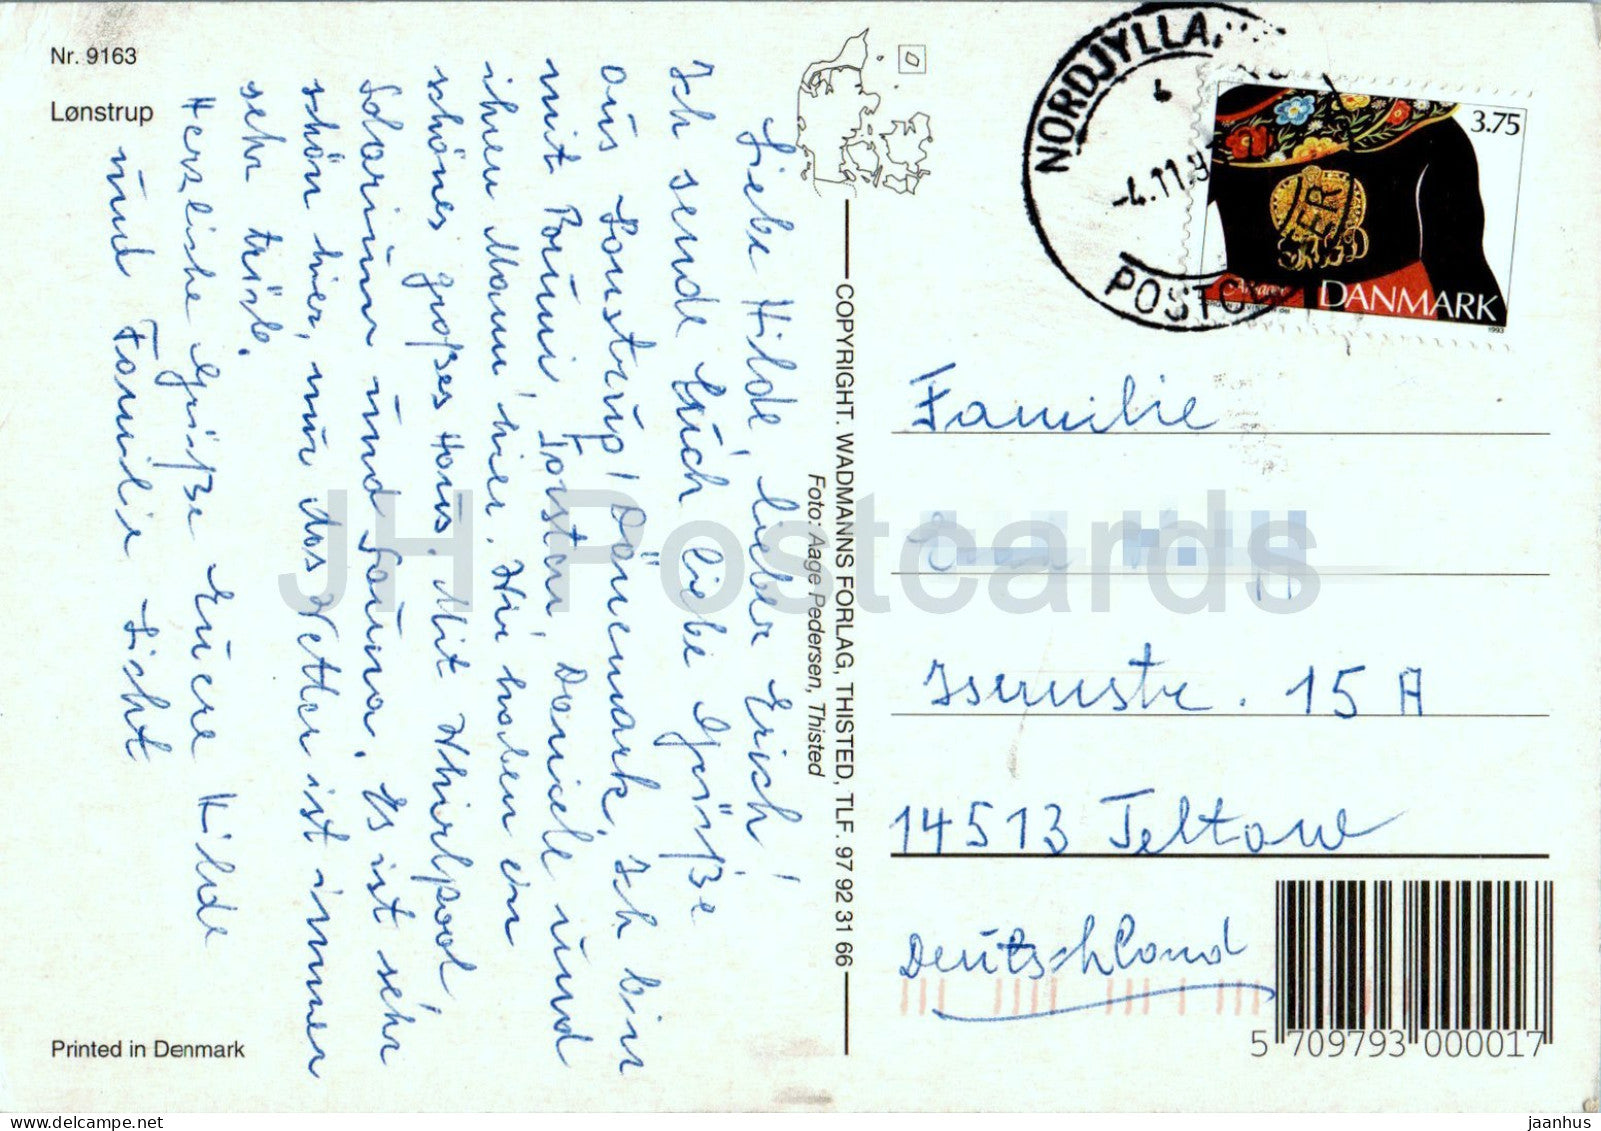 Nr. 9163
Lønstrup
Liebe Hilde, lieber Erich!
Ich sende Euch liebe Grüße
aus Lonstrup / Dänemark. Ich bin
mit Torsten, Daniele und
ihren Mann hier. Wir haben ein
schönes großes Haus. Mit Whirlpool,
Solarium und Sauna. Es ist sehr
schön hier, nur das Wetter ist immer
sehr trüb.
Herzliche Grüße Euere Hilde
und Familie Licht
Printed in Denmark
COPYRIGHT. WADMANNS FORLAG, THISTED, TLF. 97 92 31 66
Foto: Aage Pedersen, Thisted
NORDJYLLA
-4.11.9
POSTC
3.75
DANMARK
1993
Familie
Iserstr. 15 A
14513 Teltow
Deutschland
5 709793 000017
JH Postcards
jaanhus
© delcampe.net